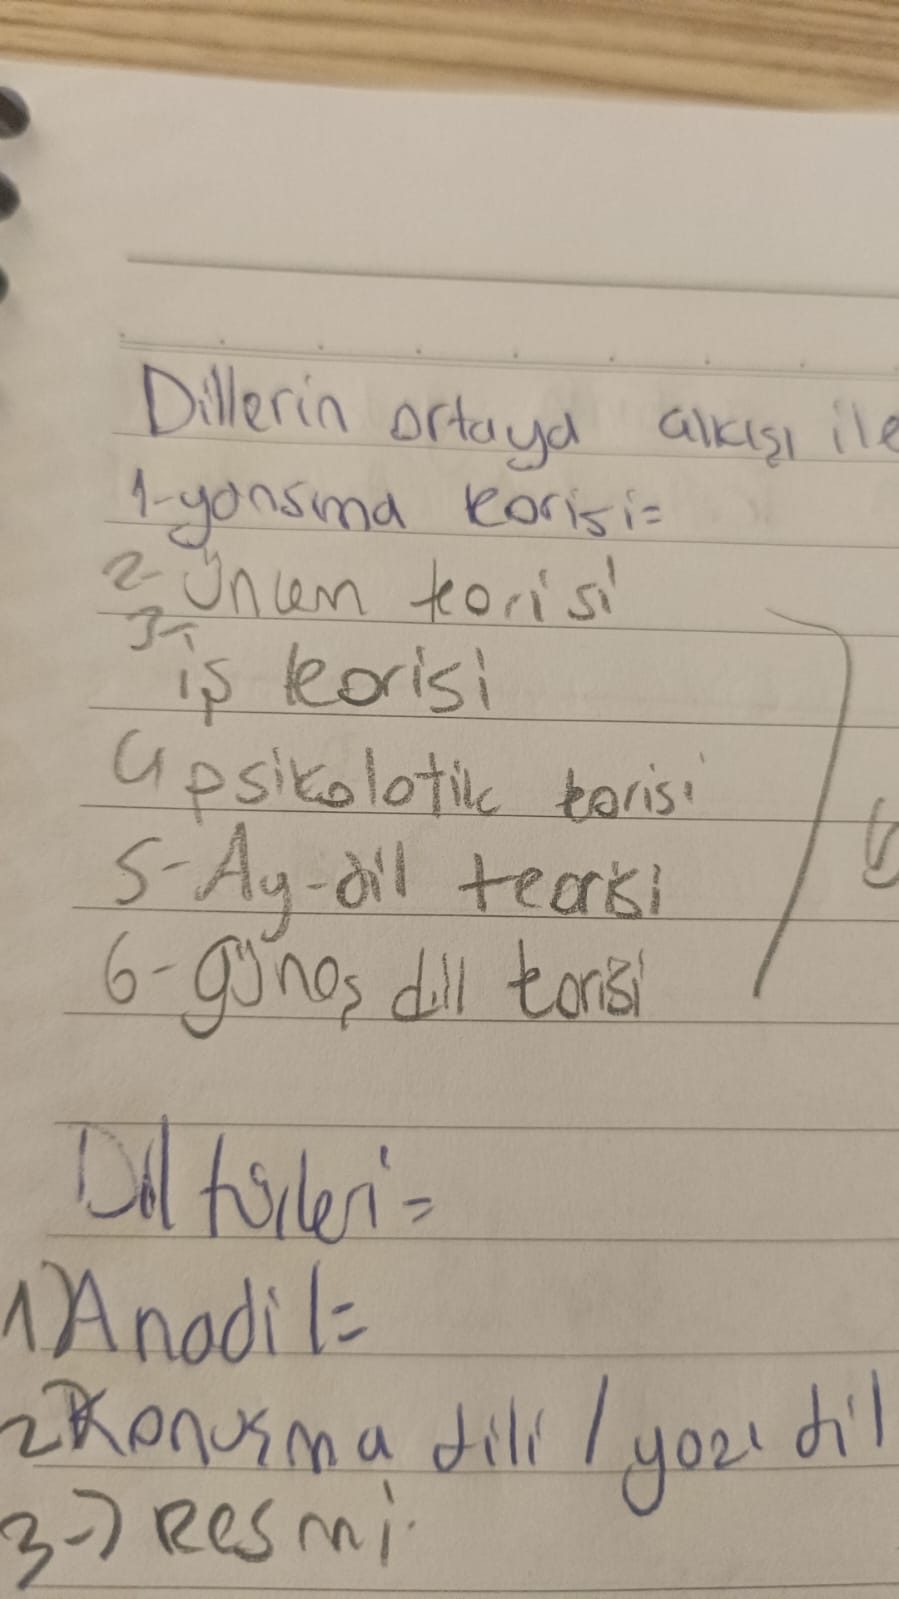 Dillerin ortaya çıkışı ile
1-yansıma teorisi=
2-Ünlem teorisi
3-iş teorisi
4 psikolotik torisi
5-Ay-dil teorisi
6-güneş dill torisi
Dil türleri=
1) Anadil=
2) Konuşma dili / yazı dil
3-) Resmi